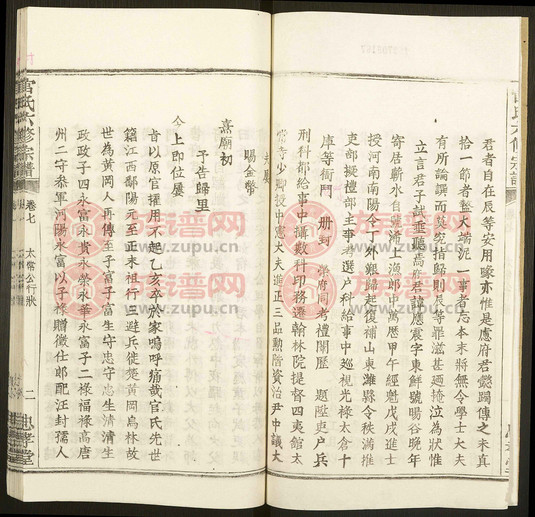 君者自在辰等安用喙亦惟是應府君懿躅傳之未真
拾一節者盭大端泥一事者忘本末將無令學士大夫
有所論譔而莫究指歸則辰等罪滋甚廼掩泣為狀惟
立言君子試垂聽焉府君諱應震字東鮮號暘谷晚年
寄居蘄水自號浠上漁郎中萬歷甲午經魁戊戌進士
授河南南陽令丁外艱歸起復補山東濰縣令秩滿推
吏部擬擅部主事考選戶科給事中巡視光祿太倉十
庫等衙門 冊封 榮府同考禮闈歷 題陞吏戶兵
刑科都給事中攝數科印務遷翰林院提督四夷館太
常寺少卿授中憲大夫進正三品勳階資治尹中議大
夫屢
賜金幣
熹廟初
予告歸里
今上即位屢
旨以原官擢用不起乙亥卒於家嗚呼痛哉官氏先世
籍江西鄱陽元至正末祖行三避兵徙楚黃岡烏林故
世為黃岡人再傳至子富子富生守忠守忠生清清生
政政子四永富永貴永榮永華永富子二祿福祿高唐
州二守叅軍河陽永富以子祿贈徵仕郎配汪封孺人
官氏六修宗譜
卷七
太常公行狀
二
忠孝堂
族谱网
www.zupu.cn